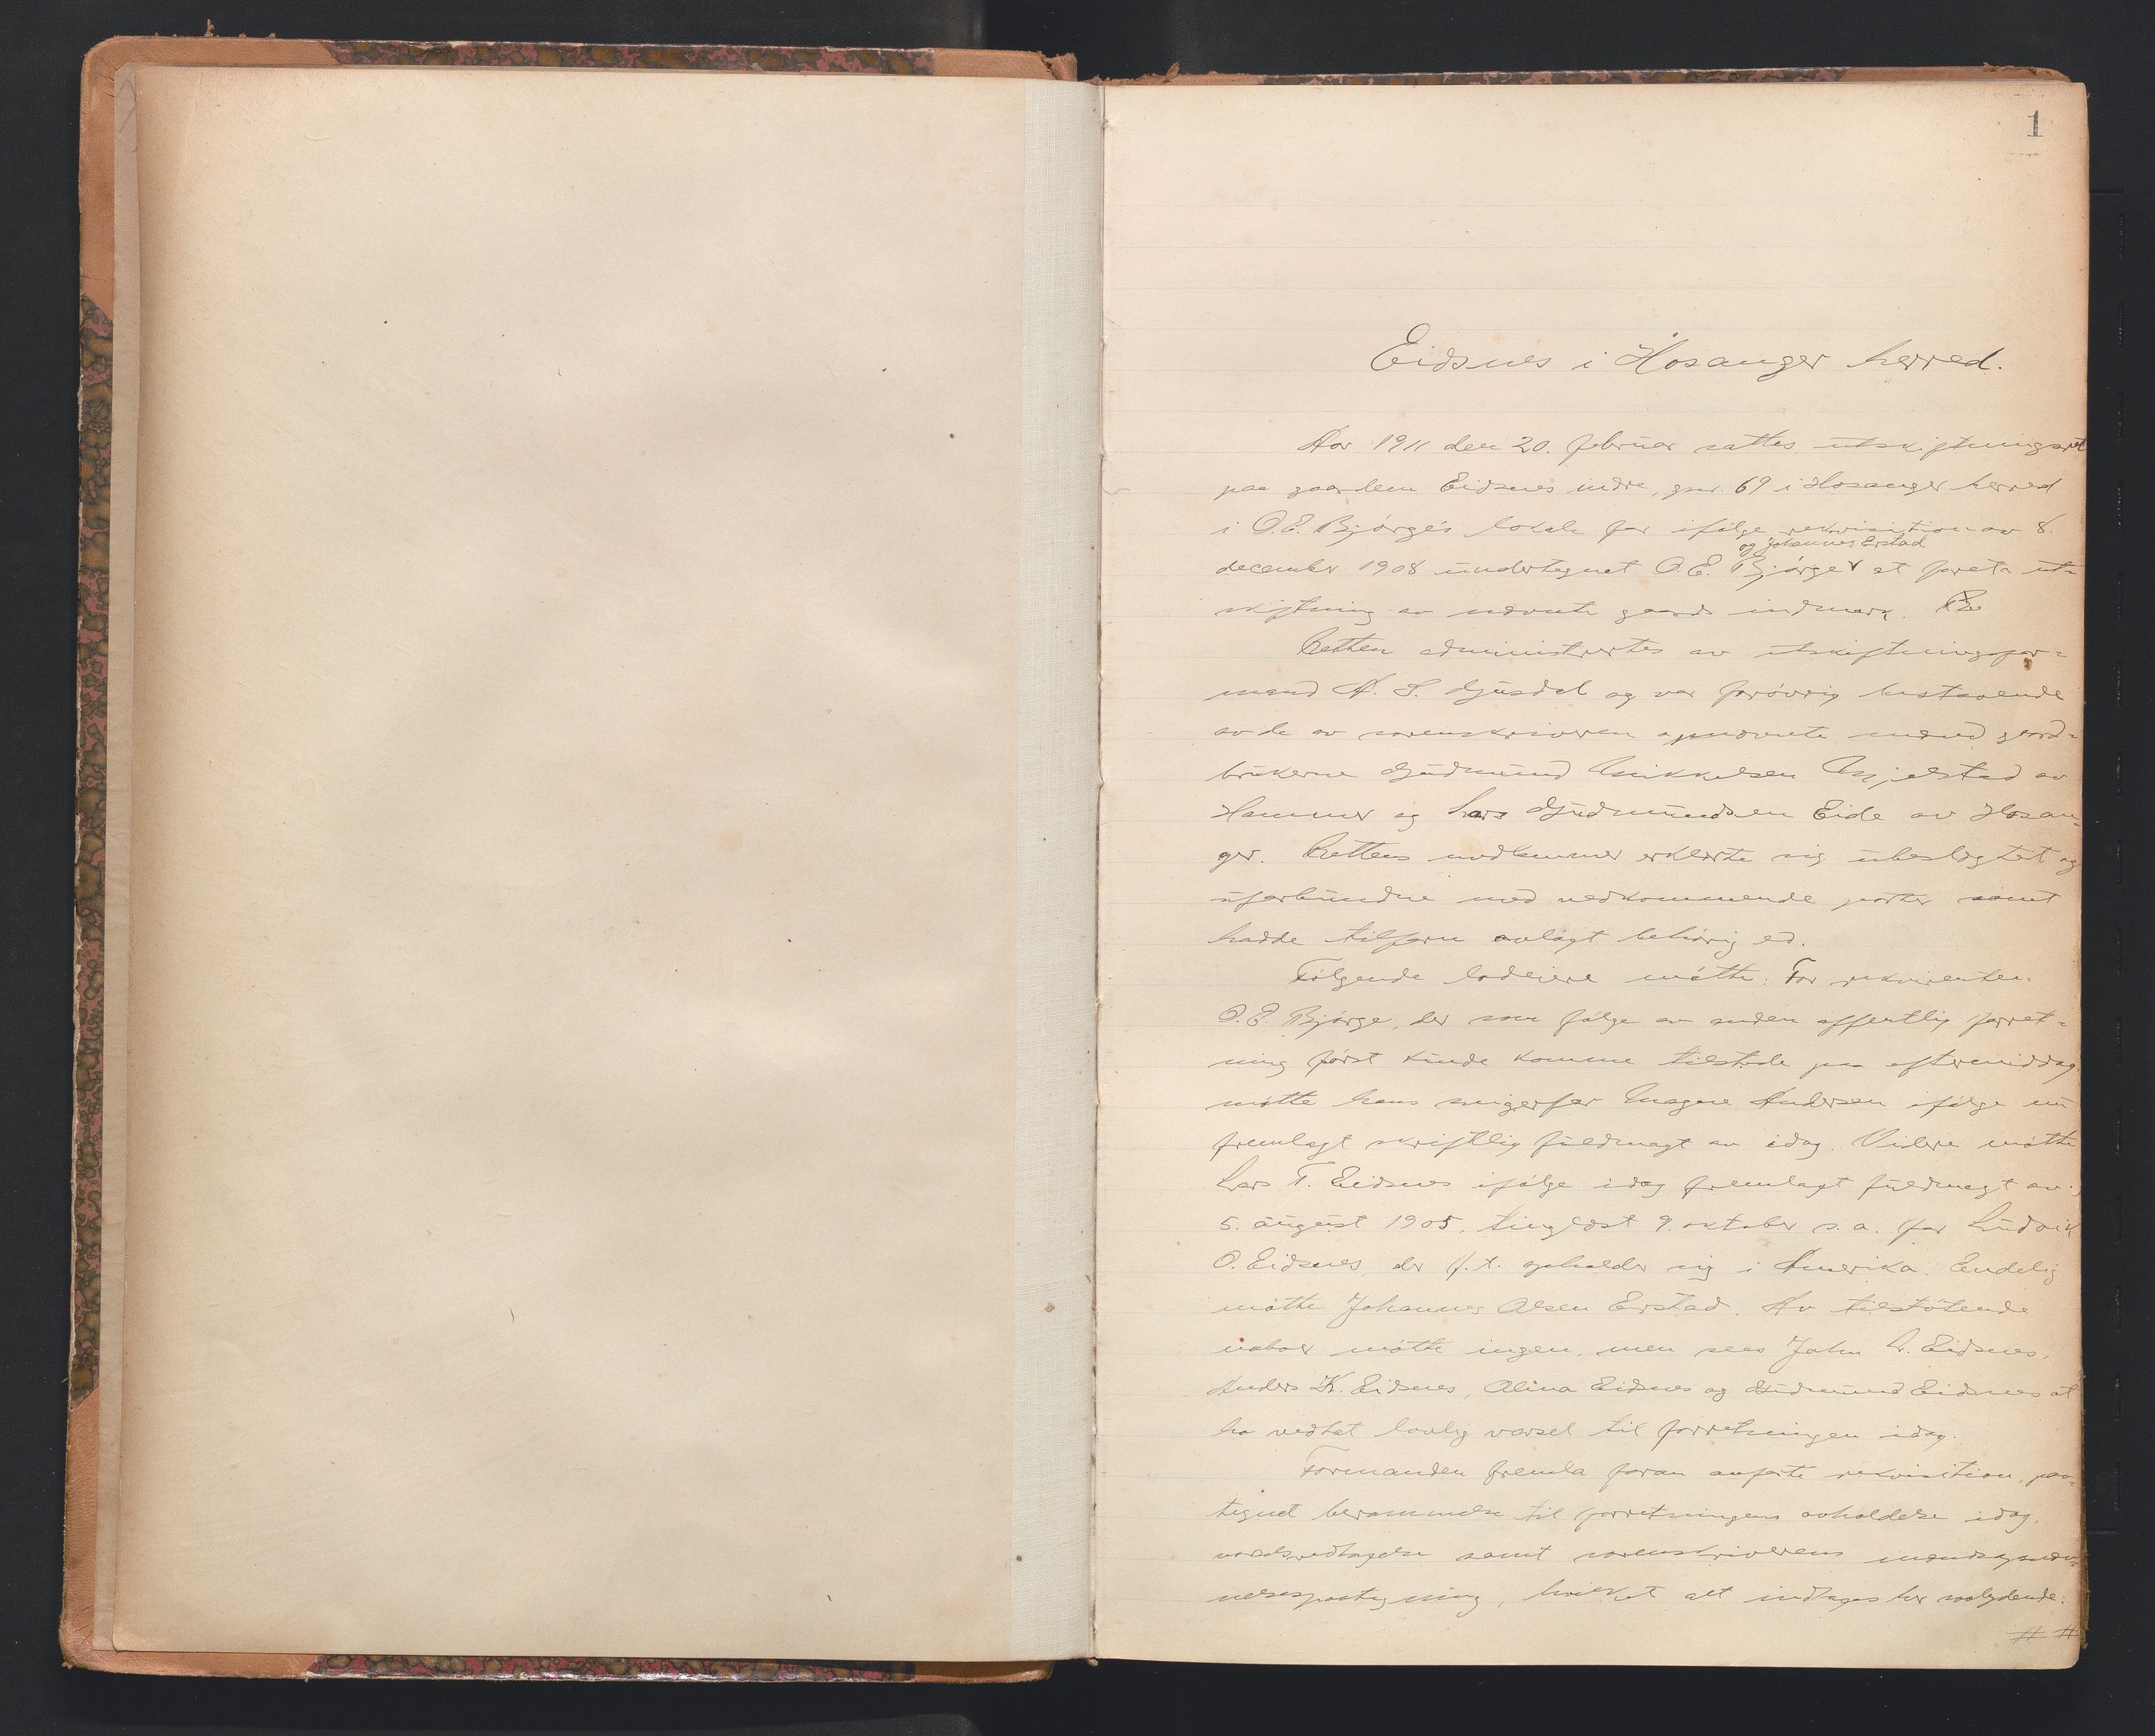 1
Eidsnes i Hosanger herred.
Aar 1911 den 20. februar sattes utskiftningsret
paa gaarden Eidsnes indre, gnr. 69 i Hosanger herred
i O. E. Bjørge's lokale for ifølge rekvisition av 8.
og Johannes Erstad
december 1908 undertegnet O. E. Bjørge at foreta ut-
skiftning av nævnte gaards indmark.
Retten administrertes av utskiftningsfor-
mand A. S. Gjusdal og var forøvrig bestaaende
av de av sorenskriveren opnævnte mænd gaard-
brukerne Gudmund Mikkelsen Mjelstad av
Hammer og Lars Gudmundsen Eide av Hosan-
ger. Rettens medlemmer erklærte sig ubeslegtet og
uforbundne med vedkommende parter samt
hadde tilforn avlagt behørig ed.
Følgende lodeiere møtte: For rekvirenten
O. E. Bjørge, der som følge av anden offentlig forret-
ning først kunde komme tilstede paa eftermiddag
møtte hans svigerfar Magne Andersen ifølge nu
fremlagt skriftlig fuldmagt av idag. Videre møtte
Lars T. Eidsnes ifølge idag fremlagt fuldmagt av
5. august 1905, tinglæst 9. oktober s. a. for Ludvik
O. Eidsnes, der f. t. opholder sig i Amerika. Endelig
møtte Johannes Olsen Erstad. Av tilstøtende
naboer møtte ingen, men sees John L. Eidsnes,
Anders K. Eidsnes, Alina Eidsnes og Gudmund Eidsnes at
ha vedtat lovlig varsel til forretningen idag.
Formanden fremla foran anførte rekvisition, paa-
tegnet berammelse til forretningens avholdelse idag,
varselsvedtagelse samt sorenskriverens mandsopnæv-
nelsespaategning, hvilket alt indtages her saalydende: